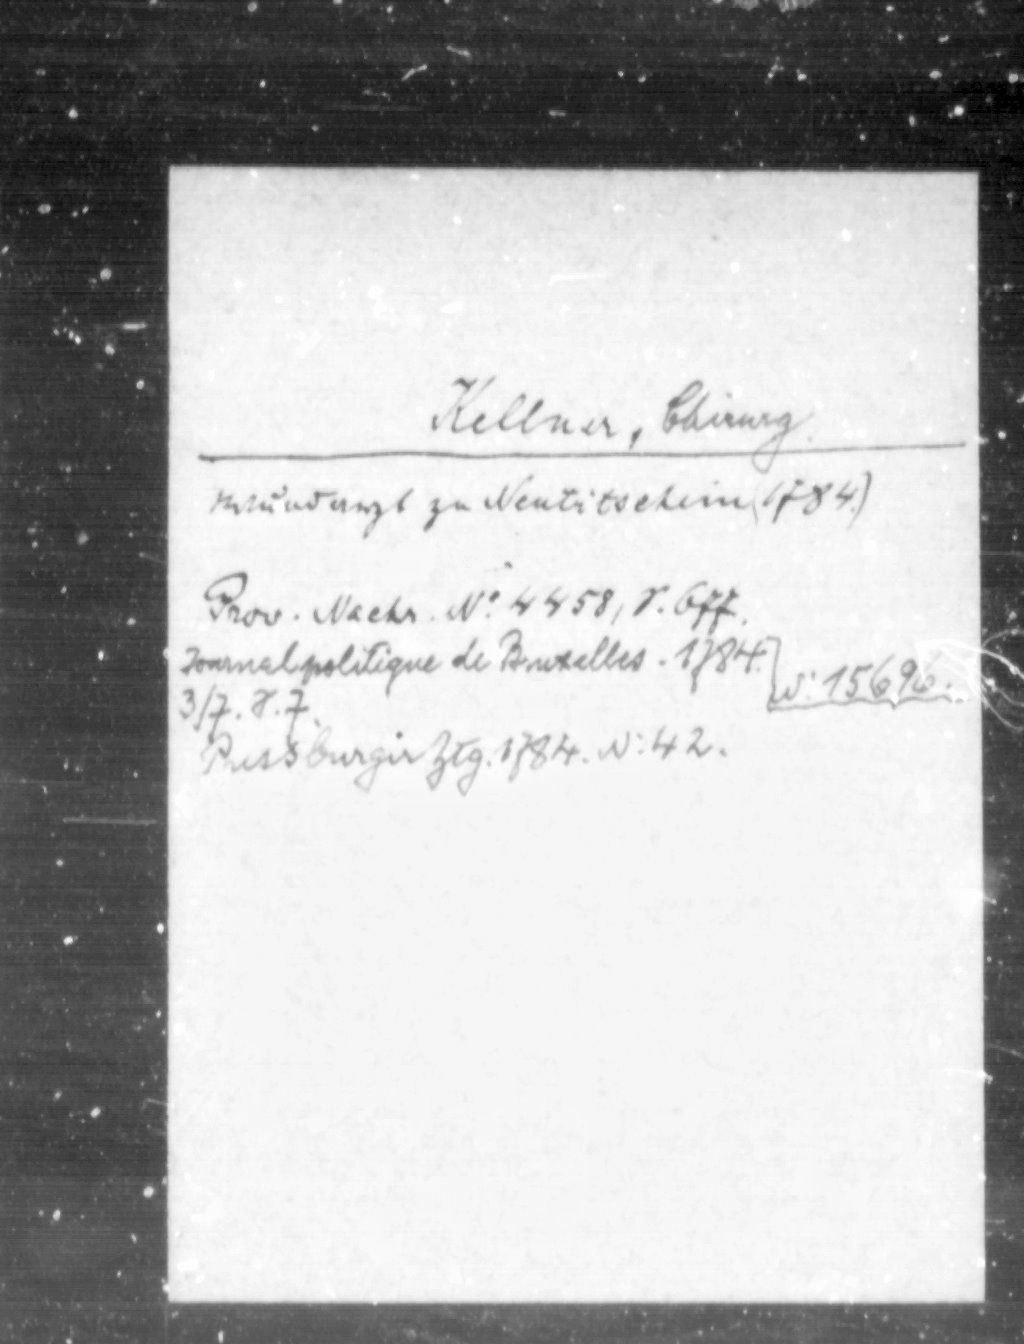 Kellner, Chirurg.
Wundarzt zu Neutitschein (1784)
Prov. Nachr. N: 4458, S. 677.
Journal politique de Bruxelles. 1784.
N: 15696.
3/7. S. 7.
Pressburger Ztg. 1784. N: 42.